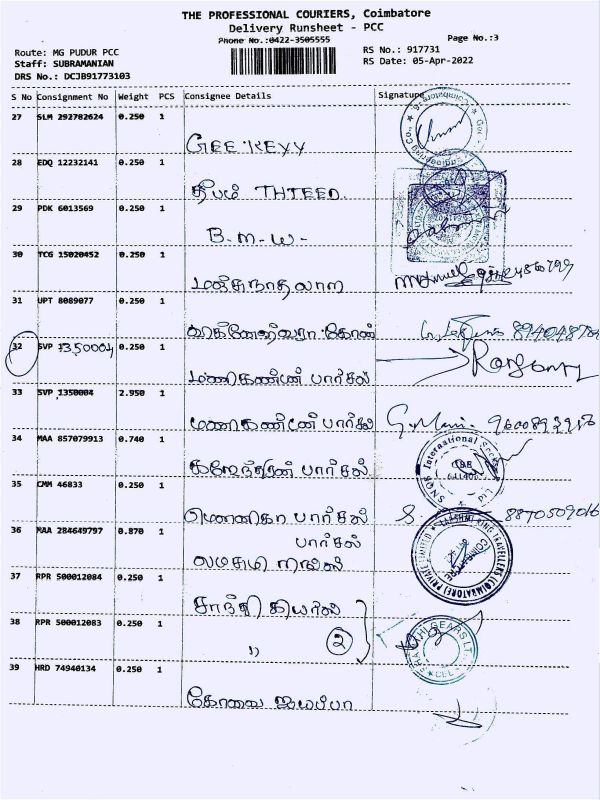 THE PROFESSIONAL COURIERS, Coimbatore
Delivery Runsheet - PCC
Phone No.:0422-3505555
Page No.:3
Route: MG PUDUR PCC
RS No.: 917731
Staff: SUBRAMANIAN
RS Date: 05-Apr-2022
DRS No.: DCJB91773103
S No Consignment No Weight PCS Consignee Details Signature
27 SLM 292782624 0.250 1
GEE KEYY
28 EDQ 12232141 0.250 1
தீபம் THTEED.
29 PDK 6013569 0.250 1
B.M.W-
30 TCG 15020452 0.250 1
31 UPT 8089077 0.250 1
32 SVP 1350004 0.250 1
மணிகண்டன் பார்சல்
33 SVP 1350004 2.950 1
மணிகண்டன் பார்சல்
34 MAA 857079913 0.740 1
கஜேந்திரன் பார்சல்
SNQS International Socks
35 CMM 46833 0.250 1
மொனிகா பார்சல் S. 8870509016
36 MAA 284649797 0.870 1
பார்சல்
LAKSHMI RING TRAVELLERS (COIMBATORE) PRIVATE LIMITED
37 RPR 500012084 0.250 1
சாந்தி கியர்ஸ்
38 RPR 500012083 0.250 1
" 2
39 HRD 74940134 0.250 1
கோவை